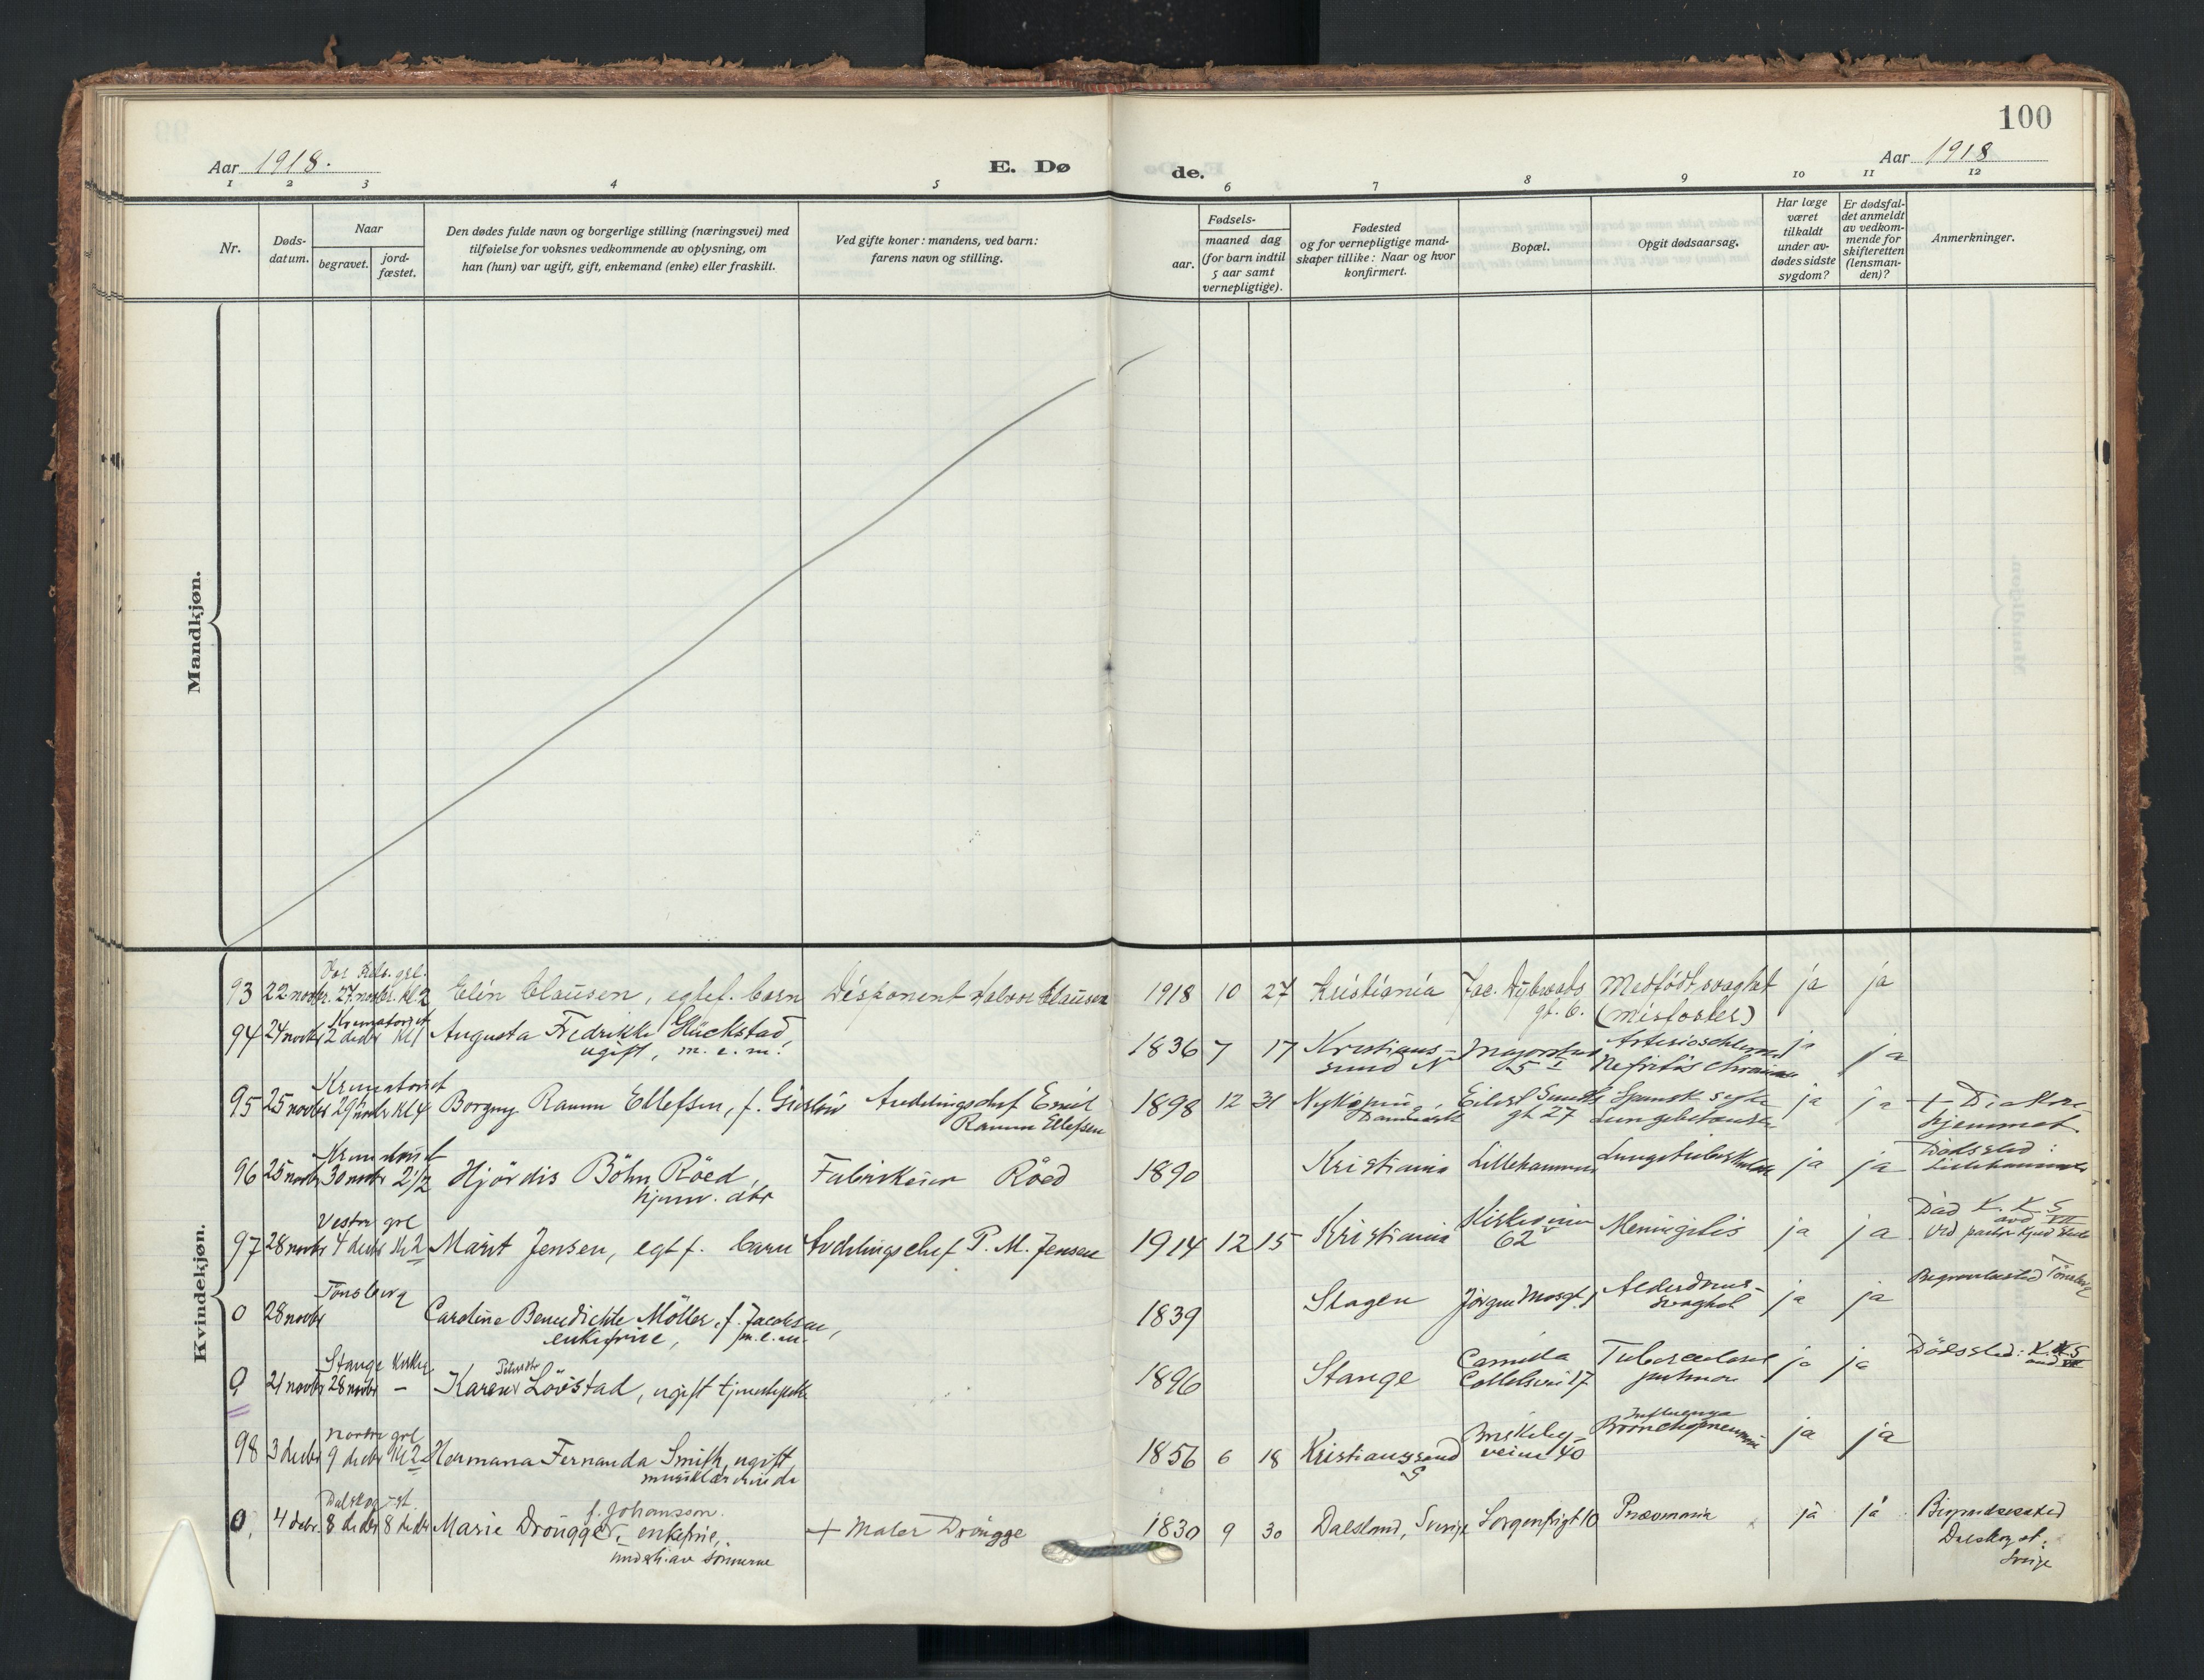 100
Aar 1918.
E. Dø
de.
Aar 1918
1 2 3 4 5 6 7 8 9 10 11 12
Nr.
Døds-
datum.
Naar
begravet.
jord-
fæstet.
Den dødes fulde navn og borgerlige stilling (næringsvei) med
tilføielse for voksnes vedkommende av oplysning, om
han (hun) var ugift, gift, enkemand (enke) eller fraskilt.
Ved gifte koner: mandens, ved barn:
farens navn og stilling.
Fødsels-
aar.
maaned dag
(for barn indtil
5 aar samt
vernepligtige).
Fødested
og for vernepligtige mand-
skaper tillike: Naar og hvor
konfirmert.
Bopæl.
Opgit dødsaarsag.
Har læge
været
tilkaldt
under av-
dødes sidste
sygdom?
Er dødsfal-
det anmeldt
av vedkom-
mende for
skifteretten
(lensman-
den)?
Anmerkninger.
Mandkjøn.
Kvindekjøn.
Vor Frels. grl.
93 22 novbr. 27. novbr. kl. 2 Elin Clausen, egtef. barn Disponent Halvor Clausen 1918 10 27 Kristiania Jac. Dybwads Medfödt svaghet ja ja
gt. 6. (misfoster)
Krematoriet
94 24 novbr 2 decbr kl 1 Augusta Fredrikke Glückstad, 1836 7 17 Kristians- Majorstuv ja ja
ugift, m. e. m. sund N 5 I Nefritis chronica
Krematoriet
95 25 novbr 29 novbr kl 4 Borgny Ramm Ellefsen, f. Avdelingschef Emil 1898 12 31 Nyköping, Eilert Sundts Spansk syke ja ja
Ramm Ellefsen Danmark gt 27 hjemmet
Krematoriet
96 25 novbr 30 novbr 2 1/2 Hjördis Böhn Röed, Fabrikeier Röed 1890 Kristiania Lillehammer Lungetuberkulose ja ja Dödssted:
hjemv. dtr Lillehammer
Vestre grl
97 28 novbr 4 decbr kl 2 Marit Jensen, egt f. barn Avdelingschef P. M. Jensen 1914 12 15 Kristiania Meningitis ja ja Död K. K. S
62 avd VII
Tönsberg
0 28 novbr Caroline Benedichte Möller, f. Jacobsen, 1839 Skagen Jörgen Moesgt. 1 Alderdoms- ja ja Begravelsessted Tönsberg
enkefrue, m. e. m. svaghet
Stange kirke
0 21 novbr 28 novbr – Karen Petrine Lövstad, ugift tjenestepike 1896 Stange Camilla Tuberculose ja ja Dödssted: K. K. S
Colletsvei 17 pulmon avd VII
Nordre grl
98 3 decbr 9 decbr kl 2 Hermana Fernanda Smith, ugift, 1856 6 18 Kristianssand Briskeby- Influenza ja ja
musiklærerinde S veien 40 Bronchopneumoni
Dalskog st.
f. Johansson.
0, 4 debr. 8 decbr 8 decbr Marie Drougge, enkefrue, + Maler Drougge 1830 9 30 Dalsland, Sverige Sorgenfrigt 10 Pneumonia ja ja Begravelsessted
underh. av sönnerne Dalskog st.
Sverige